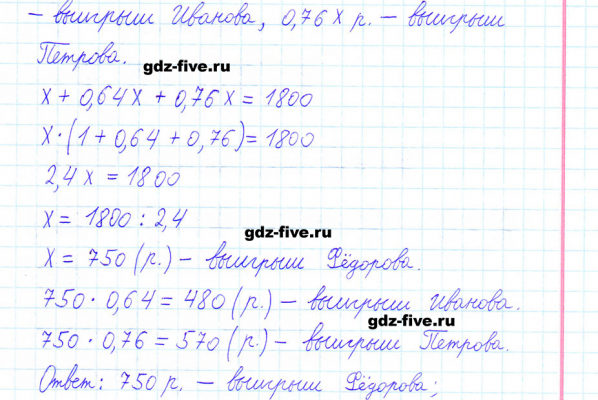 – выигрыш Иванова, 0,76 x р. – выигрыш
Петрова.
gdz-five.ru
x + 0,64x + 0,76x = 1800
x·(1 + 0,64 + 0,76) = 1800
2,4x = 1800
x = 1800 : 2,4
gdz-five.ru
x = 750 (р.) – выигрыш Фёдорова.
750 · 0,64 = 480 (р.) – выигрыш Иванова.
gdz-five.ru
750 · 0,76 = 570 (р.) – выигрыш Петрова.
Ответ: 750 р. – выигрыш Фёдорова;